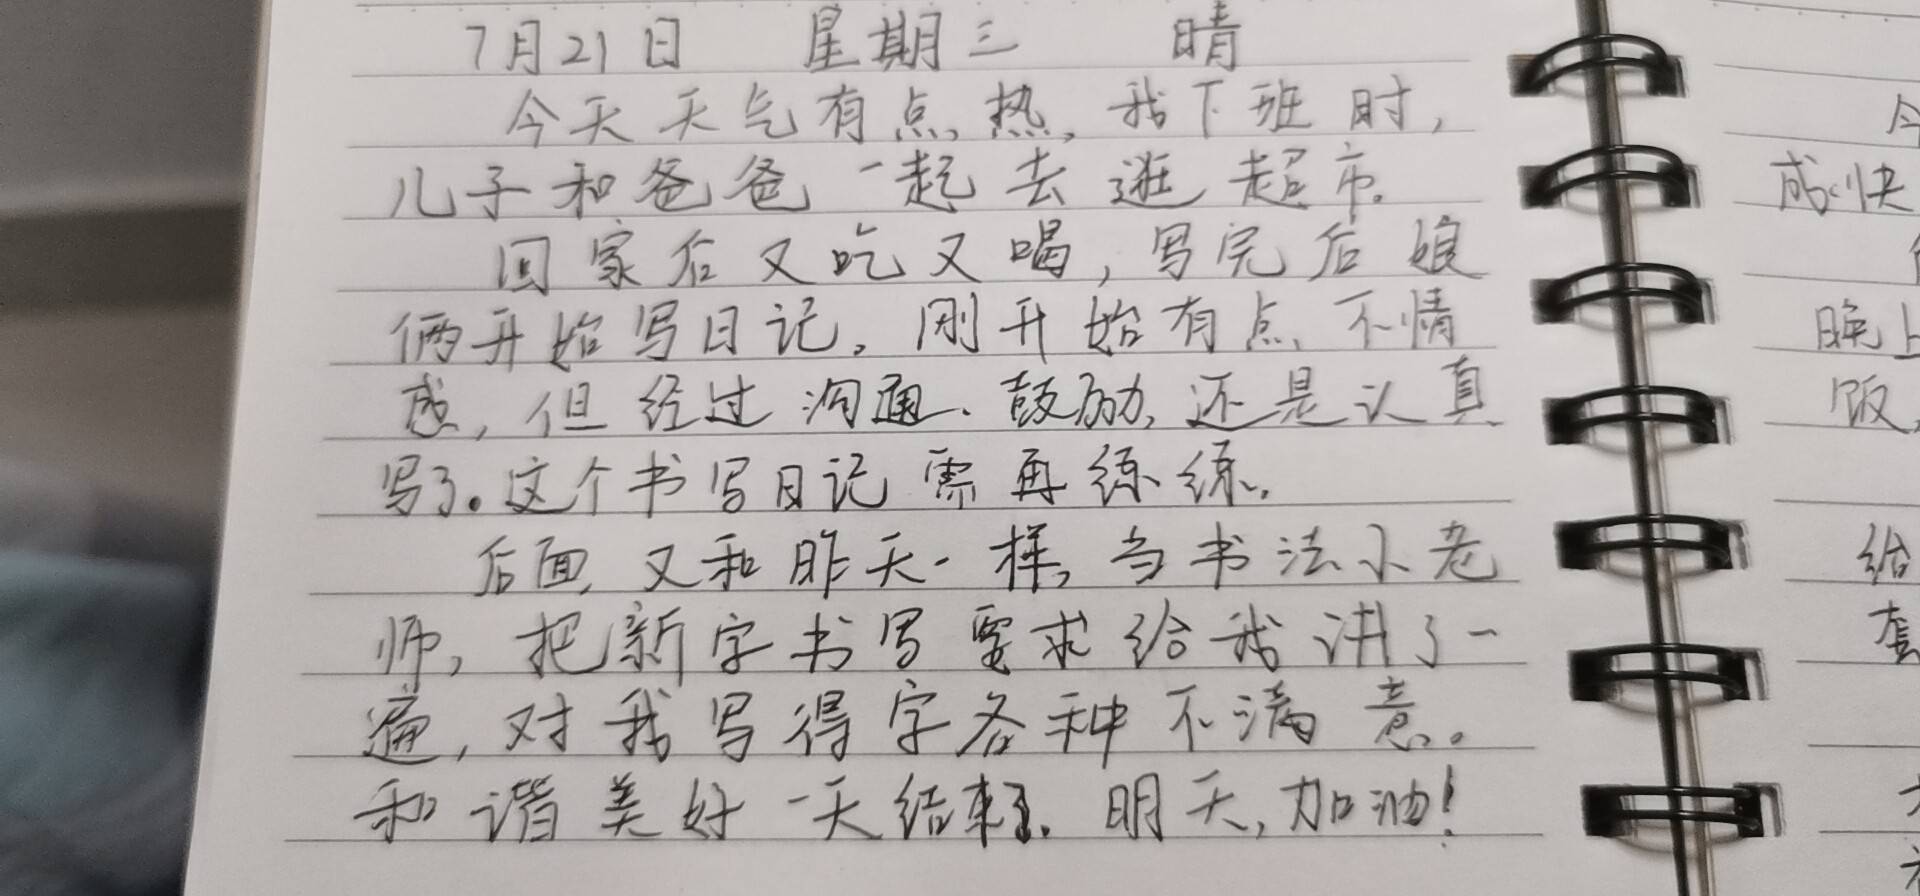 7月21日 星期三 晴
今天天气有点热，我下班时，
儿子和爸爸一起去逛超市。
回家后又吃又喝，写完后娘
俩开始写日记。刚开始有点不情
愿，但经过沟通、鼓励，还是认真
写了。这个书写日记需再练练。
后面，又和昨天一样，当书法小老
师，把新字书写要求给我讲了一
遍，对我写得字各种不满意。
和谐美好一天结束了。明天，加油！
今
成快
晚上
饭，
给
套